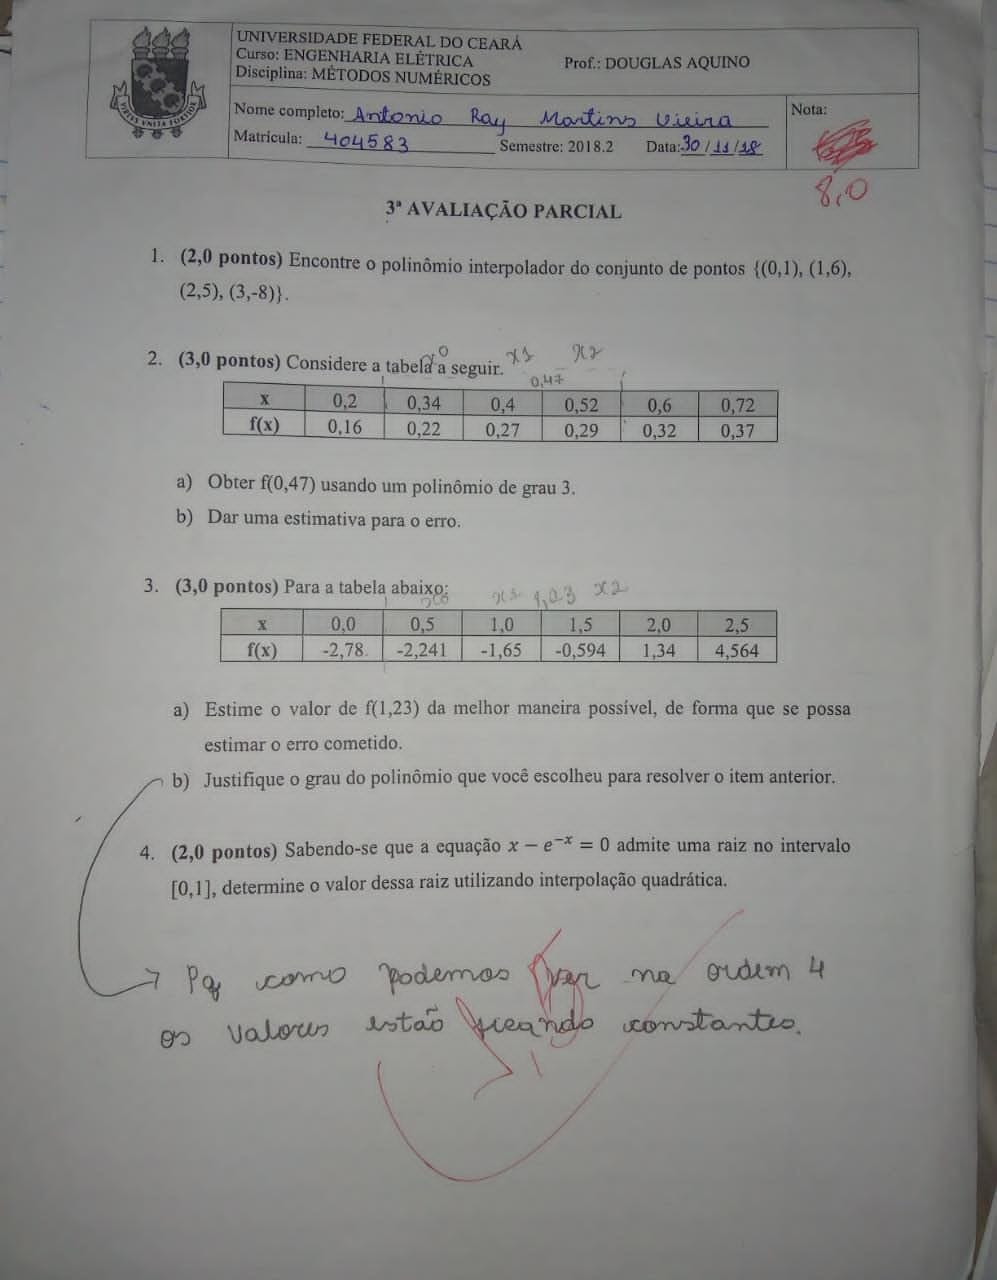 UNIVERSIDADE FEDERAL DO CEARÁ
Curso: ENGENHARIA ELÉTRICA
Prof.: DOUGLAS AQUINO
Disciplina: MÉTODOS NUMÉRICOS
Nome completo: Antonio Ray Martins Vieira
Nota:
Matrícula: 404583 Semestre: 2018.2 Data: 30/11/18
8,0
3ª AVALIAÇÃO PARCIAL
1. (2,0 pontos) Encontre o polinômio interpolador do conjunto de pontos {(0,1), (1,6),
(2,5), (3,-8)}.
x0 x1 x2
2. (3,0 pontos) Considere a tabela a seguir.
0,47
x 0,2 0,34 0,4 0,52 0,6 0,72
f(x) 0,16 0,22 0,27 0,29 0,32 0,37
a) Obter f(0,47) usando um polinômio de grau 3.
b) Dar uma estimativa para o erro.
3. (3,0 pontos) Para a tabela abaixo:
x0 x1 1,23 x2
x 0,0 0,5 1,0 1,5 2,0 2,5
f(x) -2,78 -2,241 -1,65 -0,594 1,34 4,564
a) Estime o valor de f(1,23) da melhor maneira possível, de forma que se possa
estimar o erro cometido.
b) Justifique o grau do polinômio que você escolheu para resolver o item anterior.
4. (2,0 pontos) Sabendo-se que a equação x − e⁻ˣ = 0 admite uma raiz no intervalo
[0,1], determine o valor dessa raiz utilizando interpolação quadrática.
Pq como podemos ver na ordem 4
os valores estão ficando constantes.